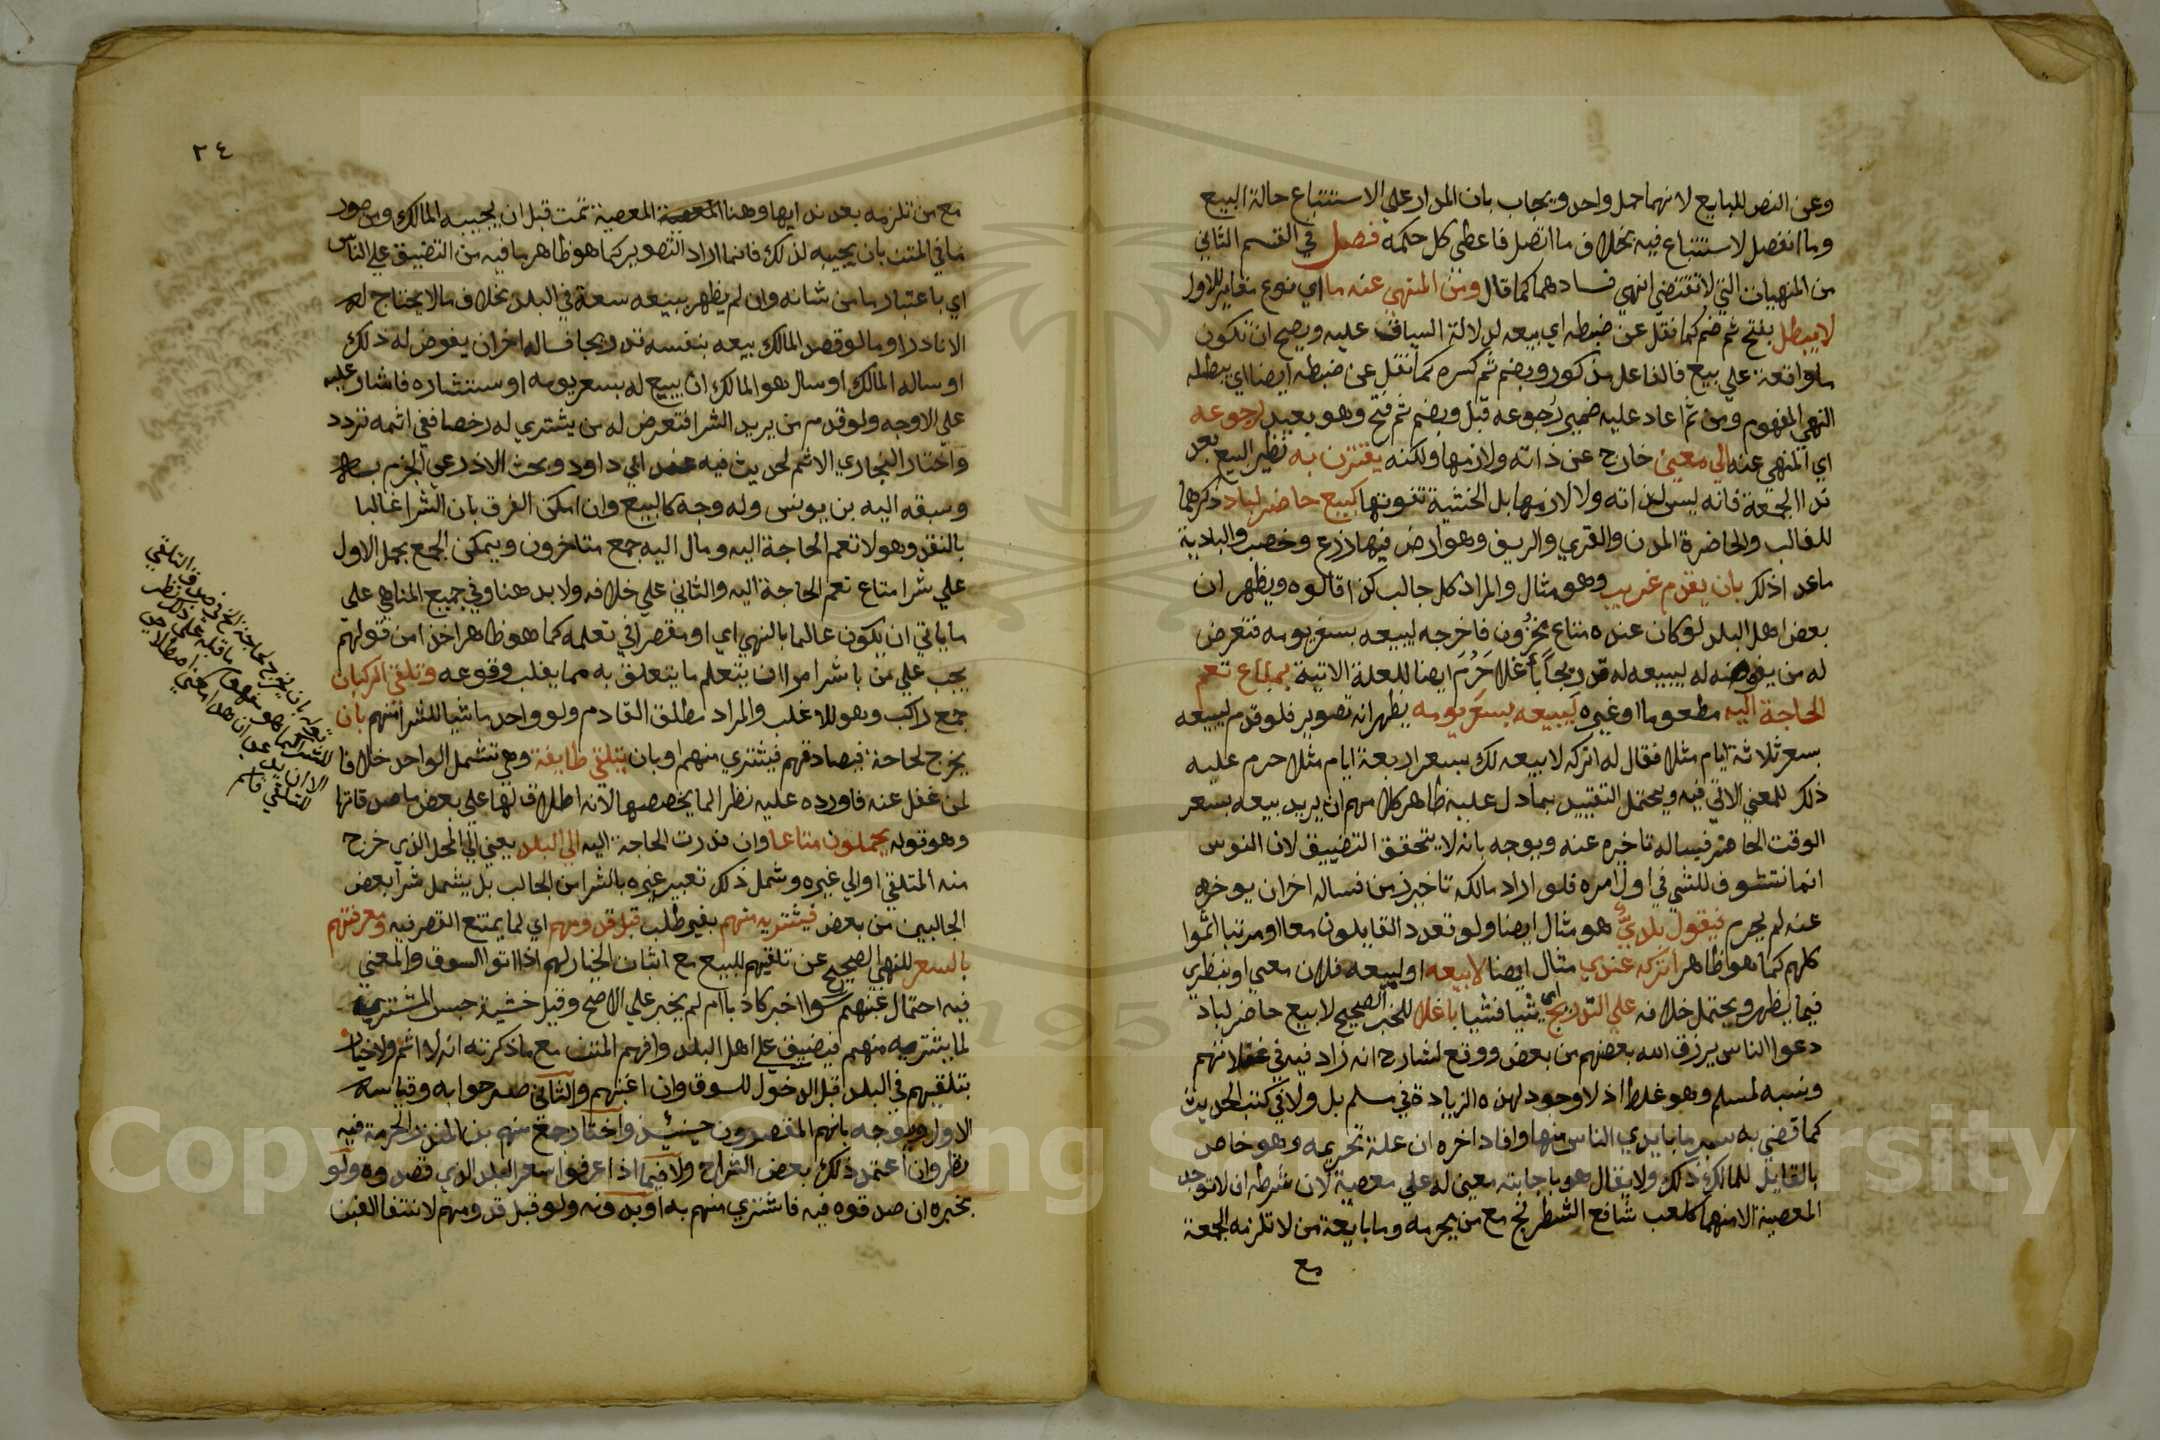 وعن النص للبايع لانهما حمل واحد ويجاب بان المدار علي الاستتباع حالة البيع
وما انفصل لا استتباع فيه بخلاف ما اتصل فاعطي كل حكمه فصل في القسم الثاني
من المنهيات التي لا تقتضي النهي فسادهما كما قال ومن المنهي عنه ما اي نوع مغاير للاول
لا يبطل بفتح ثم ضم كما نقل عن ضبطه اي بيعه لدلالة السياق عليه ويصح ان تكون
ما واقعة علي بيع فالفاعل مذكور وبضم ثم كسره كما نقل عن ضبطه ايضا اي يبطله
النهي المفهوم ومن ثم اعاد عليه ضمير رجوعه قبل وبضم ثم فتح وهو بعيد لرجوعه
اي المنهي عنه الي معني خارج عن ذاته ولازمها ولكنه يقترن به نظير البيع بعد
ندا الجمعة فانه ليس لذاته ولا لازمها بل لخشية تفوتها كبيع حاضر لباد ذكرهما
للغالب والحاضرة المدن والقري والريف وهو ارض فيها زرع وخصب والبادية
ماعدا ذلك بان يقدم غريب وهو مثال والمراد كل جالب كذا قالوه ويظهر ان
بعض اهل البلد لو كان عنده متاع مخزون فاخرجه ليبيعه بسعر يومه فتعرض
له من يفوضه له ليبيعه له تدريجا باغلا حرم ايضا للعلة الاتية بمتاع تعم
الحاجة اليه مطعوما او غيره ليبيعه بسعر يومه يظهر انه تصوير فلو قدم ليبيعه
بسعر ثلاثة ايام مثلا فقال له اتركه لابيعه لك بسعر اربعة ايام مثلا حرم عليه
ذلك للمعني الاتي فيه ويحتمل التقييد بمادل عليه ظاهر كلامهم ان يريد بيعه بسعر
الوقت الحاضر فيساله تاخيره عنه ويوجه بانه لا يتحقق التضييق لان النفوس
انما تتشوف للشي في اول امره فلو اراد مالكه تاخير زمن فساله اخر ان يوخره
عنه لم يحرم فيقول بلدي هو مثال ايضا ولو تعدد القايلون معا او مرتبا اثموا
كلهم كما هو ظاهر اتركه عندي مثال ايضا لابيعه او ليبيعه فلان معي او بنظري
فيما يظهر ويحتمل خلافه علي التدريج اي شيا فشيا باغلا للخبر الصحيح لا يبيع حاضر لباد
دعوا الناس يرزق الله بعضهم من بعض ووقع لشارح انه زاد فيه في غفلاتهم
ونسبه لمسلم وهو غلط اذ لا وجود لهذه الزيادة في مسلم بل ولا في كتب الحديث
كما قضي به سبر ما بايدي الناس منها وافاد اخره ان علة تحريمه وهو خاص
بالقايل للمالك ذلك ولا يقال هو باجابته معين له علي معصية لان شرطه ان لا توجد
المعصية الا منهما كلعب شافع الشطرنج مع من يحرمه ومبايعة من لا تلزمه الجمعة
مع
٢٤
مع من تلزمه بعد ندايها وهنا المعصية المعصية تمت قبل ان يجيبه المالك ومن صور
ما في المتن بان يجيبه لذلك فانما اراد التصوير كما هو ظاهر ما فيه من التضييق علي الناس
اي باعتبار ما من شانه وان لم يظهر ببيعه سعة في البلد بخلاف ما لا يحتاج له
الا نادرا وما لو قصد المالك بيعه بنفسه تدريجا فساله اخر ان يفوض له ذلك
او ساله المالك او سال هو المالك ان يبيع له بسعر يومه او استشاره فاشار عليه
علي الاوجه ولو قدم من يريد الشرا فتعرض له من يشتري له رخصا ففي اثمه تردد
واختار البخاري الاثم لحديث فيه عند ابي داود وبحث الاذرعي الجزم به
وسبقه اليه بن يونس وله وجه كالبيع وان امكن الفرق بان الشرا غالبا
بالنقد وهو لا تعم الحاجة اليه ومال اليه جمع متاخرون ويمكن الجمع بحمل الاول
علي شرا متاع تعم الحاجة اليه والثاني علي خلافه ولا بد هنا وفي جميع المناهي علي
ما ياتي ان يكون عالما بالنهي اي او مقصر في تعلمه كما هو ظاهر اخذا من قولهم
يجب علي من باشر امرا ان يتعلم ما يتعلق به مما يغلب وقوعه وتلقي الركبان
جمع راكب وهو للاغلب والمراد مطلق القادم ولو واحد ماشيا للشرا منهم بان
يخرج لحاجة فيصادفهم فيشتري منهم او بان يتلقي طايفة وهي تشمل الواحد خلافا
لمن غفل عنه فاورده عليه نظرا لما يخصصها لانه اطلاق لها علي بعض ماصدقاتها
وهو قوله يحملون متاعا وان ندرت الحاجة اليه الي البلد يعني الي المحل الذي خرج
منه المتلقي او الي غيره وشمل ذلك تعبير غيره بالشرا من الجالب بل يشمل شرا بعض
الجالبين من بعض فيشتريه منهم بغير طلب قبل قدومهم اي لما يمتنع القصر فيه ومعرفتهم
بالسعر للنهي الصحيح عن تلقيهم للبيع مع اثبات الخيار لهم اذا اتوا السوق والمعني
فيه احتمال غبنهم سوا اخبر كاذبا ام لم يخبر علي الاصح وقيل خشية حبس المشتري
لما يشتريه منهم فيضيق علي اهل البلد وافهم المتن مع ما ذكرته انه لا اثم ولا خيار
بتلقيهم في البلد قبل الدخول للسوق وان اغبنهم والثاني صرحوا به وقياسه
الاول ويوجه بانهم المقصرون حينئذ واختار جمع منهم بن المنذر الحرمة فيه
نظر وان اعتمد ذلك بعض الشراح ولا فيما اذا عرفوا سعر البلد الذي قصدوه ولو
بخبره ان صدقوه فيه فاشتري منهم به او بدونه ولو قبل قدومهم لانتفا الغبن
قوله بان يخرج لحاجة الخ في صدق التلقي